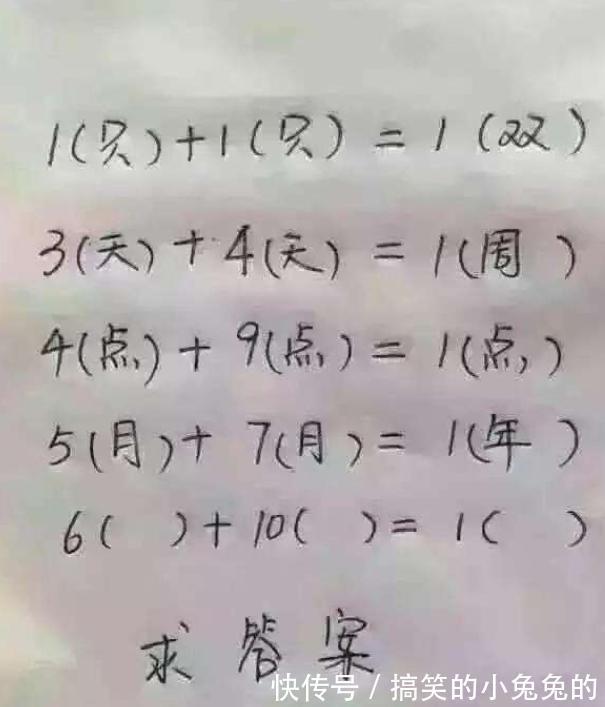 1(只)+1(只)=1(双)
3(天)+4(天)=1(周)
4(点)+9(点)=1(点)
5(月)+7(月)=1(年)
6( )+10( )=1( )
求答案
快传号/搞笑的小兔兔的